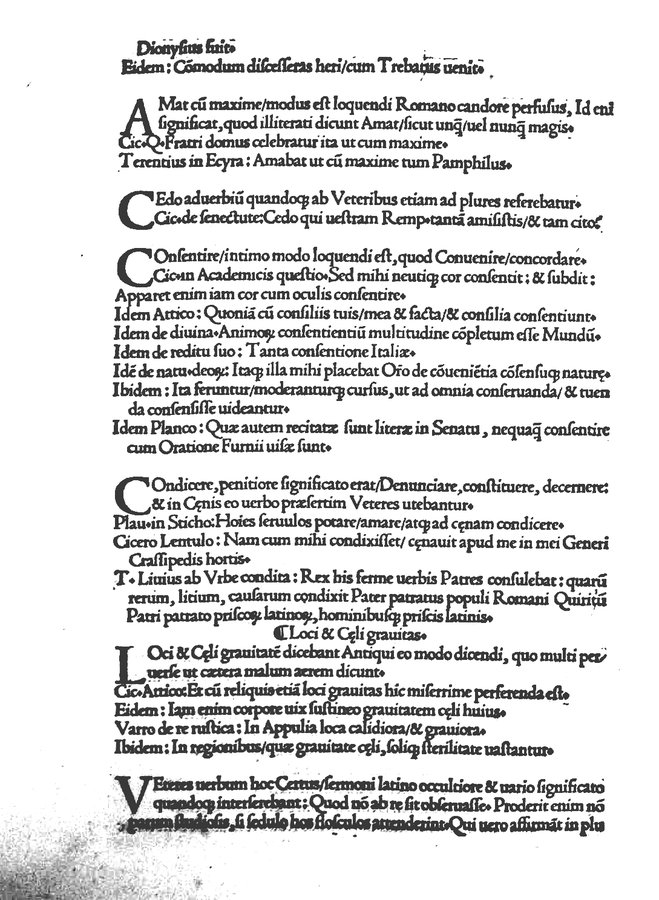 Dionysius fuit.
Eidem: Cõmodum discesseras heri/cum Trebatius uenit.
AMat cũ maxime/modus est loquendi Romano candore perfusus, Id enĩ
significat, quod illiterati dicunt Amat/sicut unq̃/uel nunq̃ magis.
Cic.Q.Fratri domus celebratur ita ut cum maxime.
Terentius in Ecyra: Amabat ut cũ maxime tum Pamphilus.
CEdo aduerbiũ quandoqꝫ ab Veteribus etiam ad plures referebatur.
Cic.de senectute:Cedo qui uestram Remp.tantã amisistis/& tam cito?
COnsentire/intimo modo loquendi est, quod Conuenire/concordare.
Cic.in Academicis questio.Sed mihi neutiqꝫ cor consentit: & subdit:
Apparet enim iam cor cum oculis consentire.
Idem Attico: Quoniã cũ consiliis tuis/mea & facta/& consilia consentiunt.
Idem de diuina.Animoꝝ consentientiũ multitudine cõpletum esse Mundũ.
Idem de reditu suo: Tanta consentione Italiæ.
Idẽ de natu.deoꝝ: Itaqꝫ illa mihi placebat Oro de cõueniẽtia cõsensuqꝫ naturę.
Ibidem: Ita feruntur/moderanturqꝫ cursus, ut ad omnia conseruanda/ & tuen
da consensisse uideantur.
Idem Planco: Quæ autem recitatæ sunt literæ in Senatu, nequaq̃ consentire
cum Oratione Furnii uisæ sunt.
COndicere, penitiore significato erat/Denunciare, constituere, decernere:
& in Cęnis eo uerbo præsertim Veteres utebantur.
Plau.in Sticho:Hoies seruulos potare/amare/atqꝫ ad cęnam condicere.
Cicero Lentulo: Nam cum mihi condixisset/ cęnauit apud me in mei Generi
Crassipedis hortis.
T. Liuius ab Vrbe condita: Rex his ferme uerbis Patres consulebat: quarũ
rerum, litium, causarum condixit Pater patratus populi Romani Quiritũ
Patri patrato priscoꝝ latinoꝝ, hominibusqꝫ priscis latinis.
¶Loci & Cęli grauitas.
LOci & Cęli grauitatẽ dicebant Antiqui eo modo dicendi, quo multi per/
uerse ut cætera malum aerem dicunt.
Cic.Attico:Et cũ reliquis etiã loci grauitas hic miserrime perferenda est.
Eidem: Iam enim corpore uix sustineo grauitatem cęli huius.
Varro de re rustica: In Appulia loca calidiora/& grauiora.
Ibidem: In regionibus/quæ grauitate cęli, soliqꝫ sterilitate uastantur.
VEteres uerbum hoc Certus/sermoni latino occultiore & uario significato
quandoqꝫ interserebant: Quod nõ ab re sit obseruasse. Proderit enim nõ
parum studiosis, si sedulo hos flosculos attenderint.Qui uero affirmãt in plu